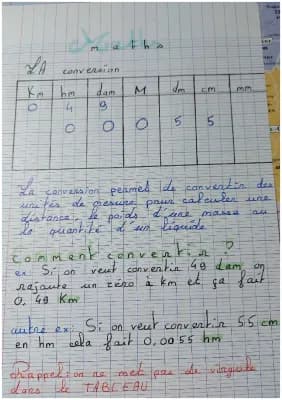 maths
LA conversion
Km hm dam M dm cm mm
0 4 9
0 0 0 5 5
La conversion permet de convertir des
unités de mesure pour calculer une
distance, le poids d'une masse ou
la quantité d'un liquide
Comment convertir ?
ex: Si on veut convertir 49 dam on
rajoute un zéro à km et ça fait
0.49 Km
autre ex: Si on veut convertir 55 cm
en hm cela fait 0,0055 hm
Rappel: on ne met pas de virgule
dans le TABLEAU